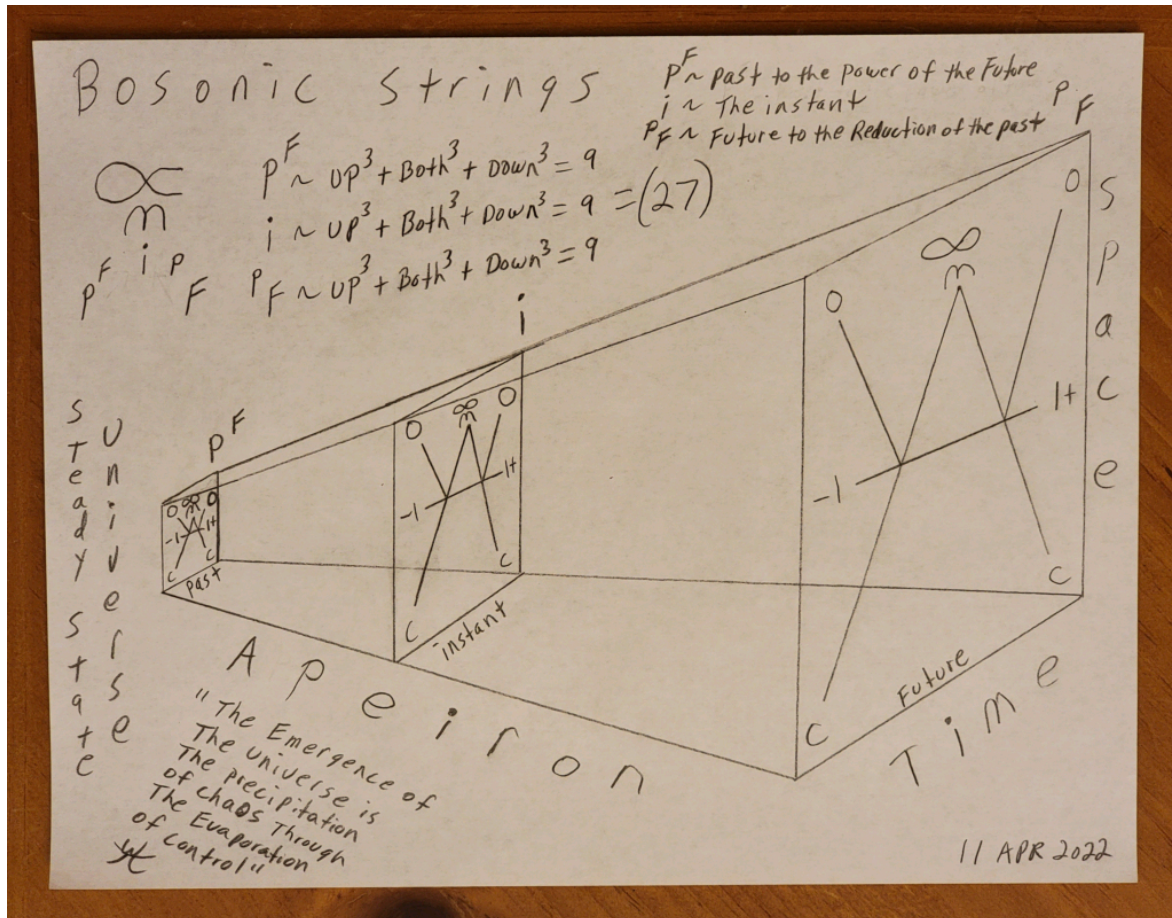 Bosonic Strings
P^F ~ past to the Power of the Future
i ~ The instant
P_F ~ Future to the Reduction of the past
∝
m
P^F i P_F
P^F ~ UP³ + Both³ + Down³ = 9
i ~ UP³ + Both³ + Down³ = 9 = (27)
P_F ~ UP³ + Both³ + Down³ = 9
Steady State
Universe
P^F
O ∞ O
m
-1 1+
C C
past
i
O ∞ O
m
-1 1+
C C
instant
P_F
O ∞ O
m
-1 1+
C C
Future
Space
Time
Apeiron
"The Emergence of
The universe is
The precipitation
of chaos Through
The Evaporation
of control"
11 APR 2022